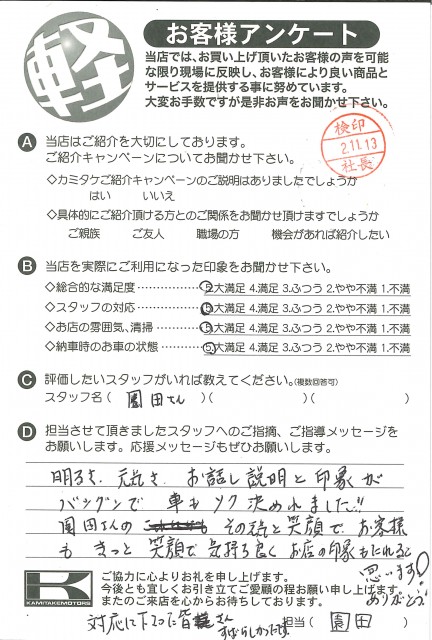 軽
お客様アンケート
当店では、お買い上げ頂いたお客様の声を可能
な限り現場に反映し、お客様により良い商品と
サービスを提供する事に努めています。
大変お手数ですが是非お声をお聞かせ下さい。
検印
2.11.13
社長
A 当店はご紹介を大切にしております。
ご紹介キャンペーンについてお聞かせ下さい。
◇カミタケご紹介キャンペーンのご説明はありましたでしょうか
はい いいえ
◇具体的にご紹介頂ける方とのご関係をお聞かせ頂けますでしょうか
ご親族 ご友人 職場の方 機会があれば紹介したい
B 当店を実際にご利用になった印象をお聞かせ下さい。
◇総合的な満足度……………5.大満足 4.満足 3.ふつう 2.やや不満 1.不満
◇スタッフの対応……………5.大満足 4.満足 3.ふつう 2.やや不満 1.不満
◇お店の雰囲気、清掃………5.大満足 4.満足 3.ふつう 2.やや不満 1.不満
◇納車時のお車の状態………5.大満足 4.満足 3.ふつう 2.やや不満 1.不満
C 評価したいスタッフがいれば教えてください。(複数回答可)
スタッフ名( 園田さん )( )( )
D 担当させて頂きましたスタッフへのご指摘、ご指導メッセージを
お願いします。応援メッセージもぜひお願いします。
明るさ、元気さ、お話し説明と印象が
バツグンで 車も ソク 決めれました!!
園田さんの その元気と笑顔で、お客様
も きっと 笑顔で 気持ち良く お店の印象もたれると
思います!
ありがとう
K
KAMITAKEMOTORS
ご協力に心よりお礼を申し上げます。
今後とも宜しくお引き立てご愛顧の程お願い申し上げます。
またのご来店を心からお待ちしております。
対応に下さった皆さん
すばらしかったです
担当( 園田 )